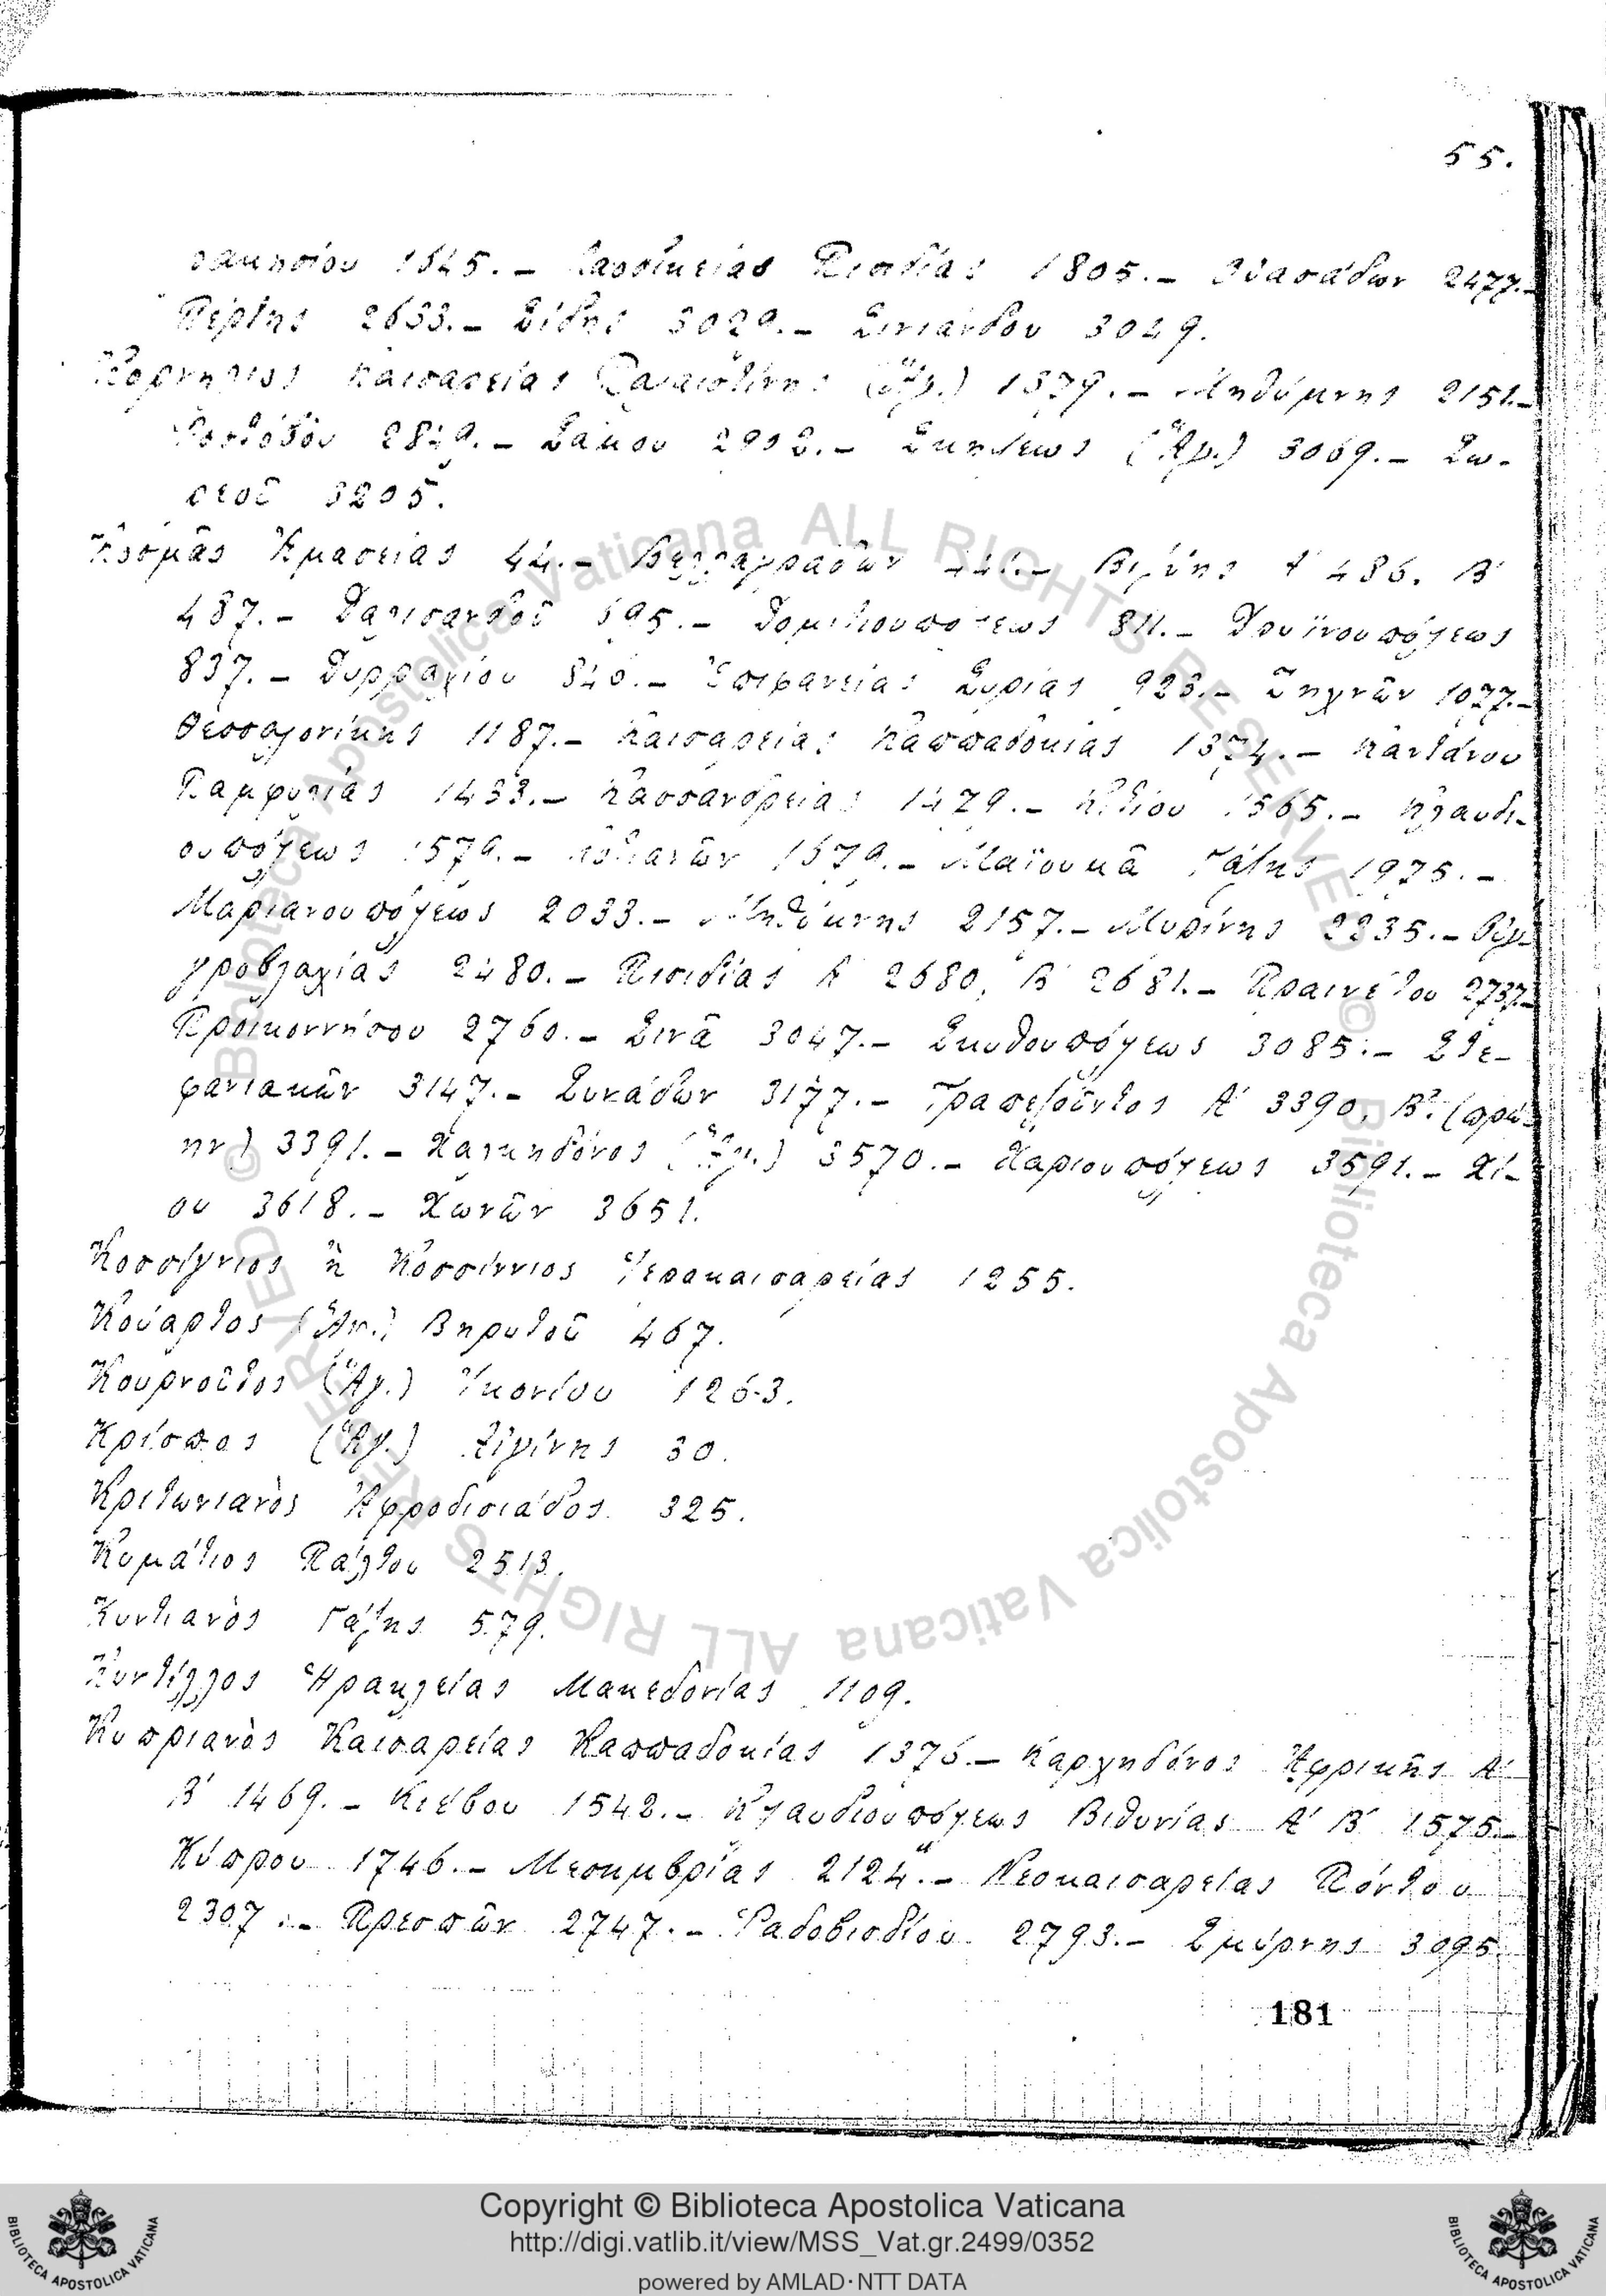 55.
1645.- Λαοδικείας Πισιδίας 1805.- Οὐασάδων 2477.-
Πέργης 2633.- Σίδης 3029.- Σινιάνδου 3049.
Κορνήλιος Καισαρείας Παλαιστίνης (Ἅγ.) 1379.- Μηθύμνης 2151.-
2879.- Σάμου 2902.- Σκήψεως (Ἅγ.) 3069.- Σω-
3205.
Κοσμᾶς Ἀμασείας 44.- Βελλαγράδων 441.- Βιζύης Α΄ 486. Β΄
487.- Δαλισανδοῦ 695.- Δομιτιουπόλεως 811.- Δρυϊνουπόλεως
837.- Δυρραχίου 840.- Ἐπιφανείας Συρίας 923.- Ζηχνῶν 1077.-
Θεσσαλονίκης 1187.- Καισαρείας Καππαδοκίας 1374.-
Παμφυλίας 1433.- Κασσανδρείας 1479.- Κιτίου 1565.- Κλαυδι-
ουπόλεως 1579.- 1679.- Μαϊουμᾶ Γάζης 1975.-
Μαριανουπόλεως 2033.- Μηθύμνης 2157.- Μυρίνης 2235.- Οὐγ-
γροβλαχίας 2480.- Πισιδίας Α΄ 2680, Β΄ 2681.- Πραινέτου 2737.-
Προικοννήσου 2760.- Σινᾶ 3047.- Σκυθουπόλεως 3085.- Στε-
φανιακῶν 3147.- Συνάδων 3177.- Τραπεζοῦντος Α΄ 3390, Β΄. (πρώ-
ην) 3391.- Χαλκηδόνος (Ἅγ.) 3570.- Χαριουπόλεως 3591.- Χί-
ου 3618.- Χωνῶν 3651.
Κοσσίγνιος ἢ Κοσσίννιος Ἱεροκαισαρείας 1255.
Κούαρτος (Ἅγ.) Βηρυτοῦ 467.
Κουρνοῦτος (Ἅγ.) Ἰκονίου 1263.
Κρίσπος (Ἅγ.) Αἰγίνης 30.
Κριτωνιανὸς Ἀφροδισιάδος 325.
Κυμάτιος Πάλτου 2513.
Κυντιανὸς Γάζης 579.
Κυντίλλος Ἡρακλείας Μακεδονίας 1109.
Κυπριανὸς Καισαρείας Καππαδοκίας 1376.- Καρχηδόνος Ἀφρικῆς Α΄
Β΄ 1469.- Κιέβου 1542.- Κλαυδιουπόλεως Βιθυνίας Α΄ Β΄ 1575.-
Κύπρου 1746.- Μεσημβρίας 2124.- Νεοκαισαρείας Πόντου
2307.- Πρεσπῶν 2747.- Ῥαδοβισδίου 2793.- Σμύρνης 3095.
181
© Biblioteca Apostolica Vaticana ALL RIGHTS RESERVED © Biblioteca Apostolica Vaticana ALL RIGHTS RESERVED
Copyright © Biblioteca Apostolica Vaticana
http://digi.vatlib.it/view/MSS_Vat.gr.2499/0352
powered by AMLAD·NTT DATA
BIBLIOTECA APOSTOLICA VATICANA
BIBLIOTECA APOSTOLICA VATICANA